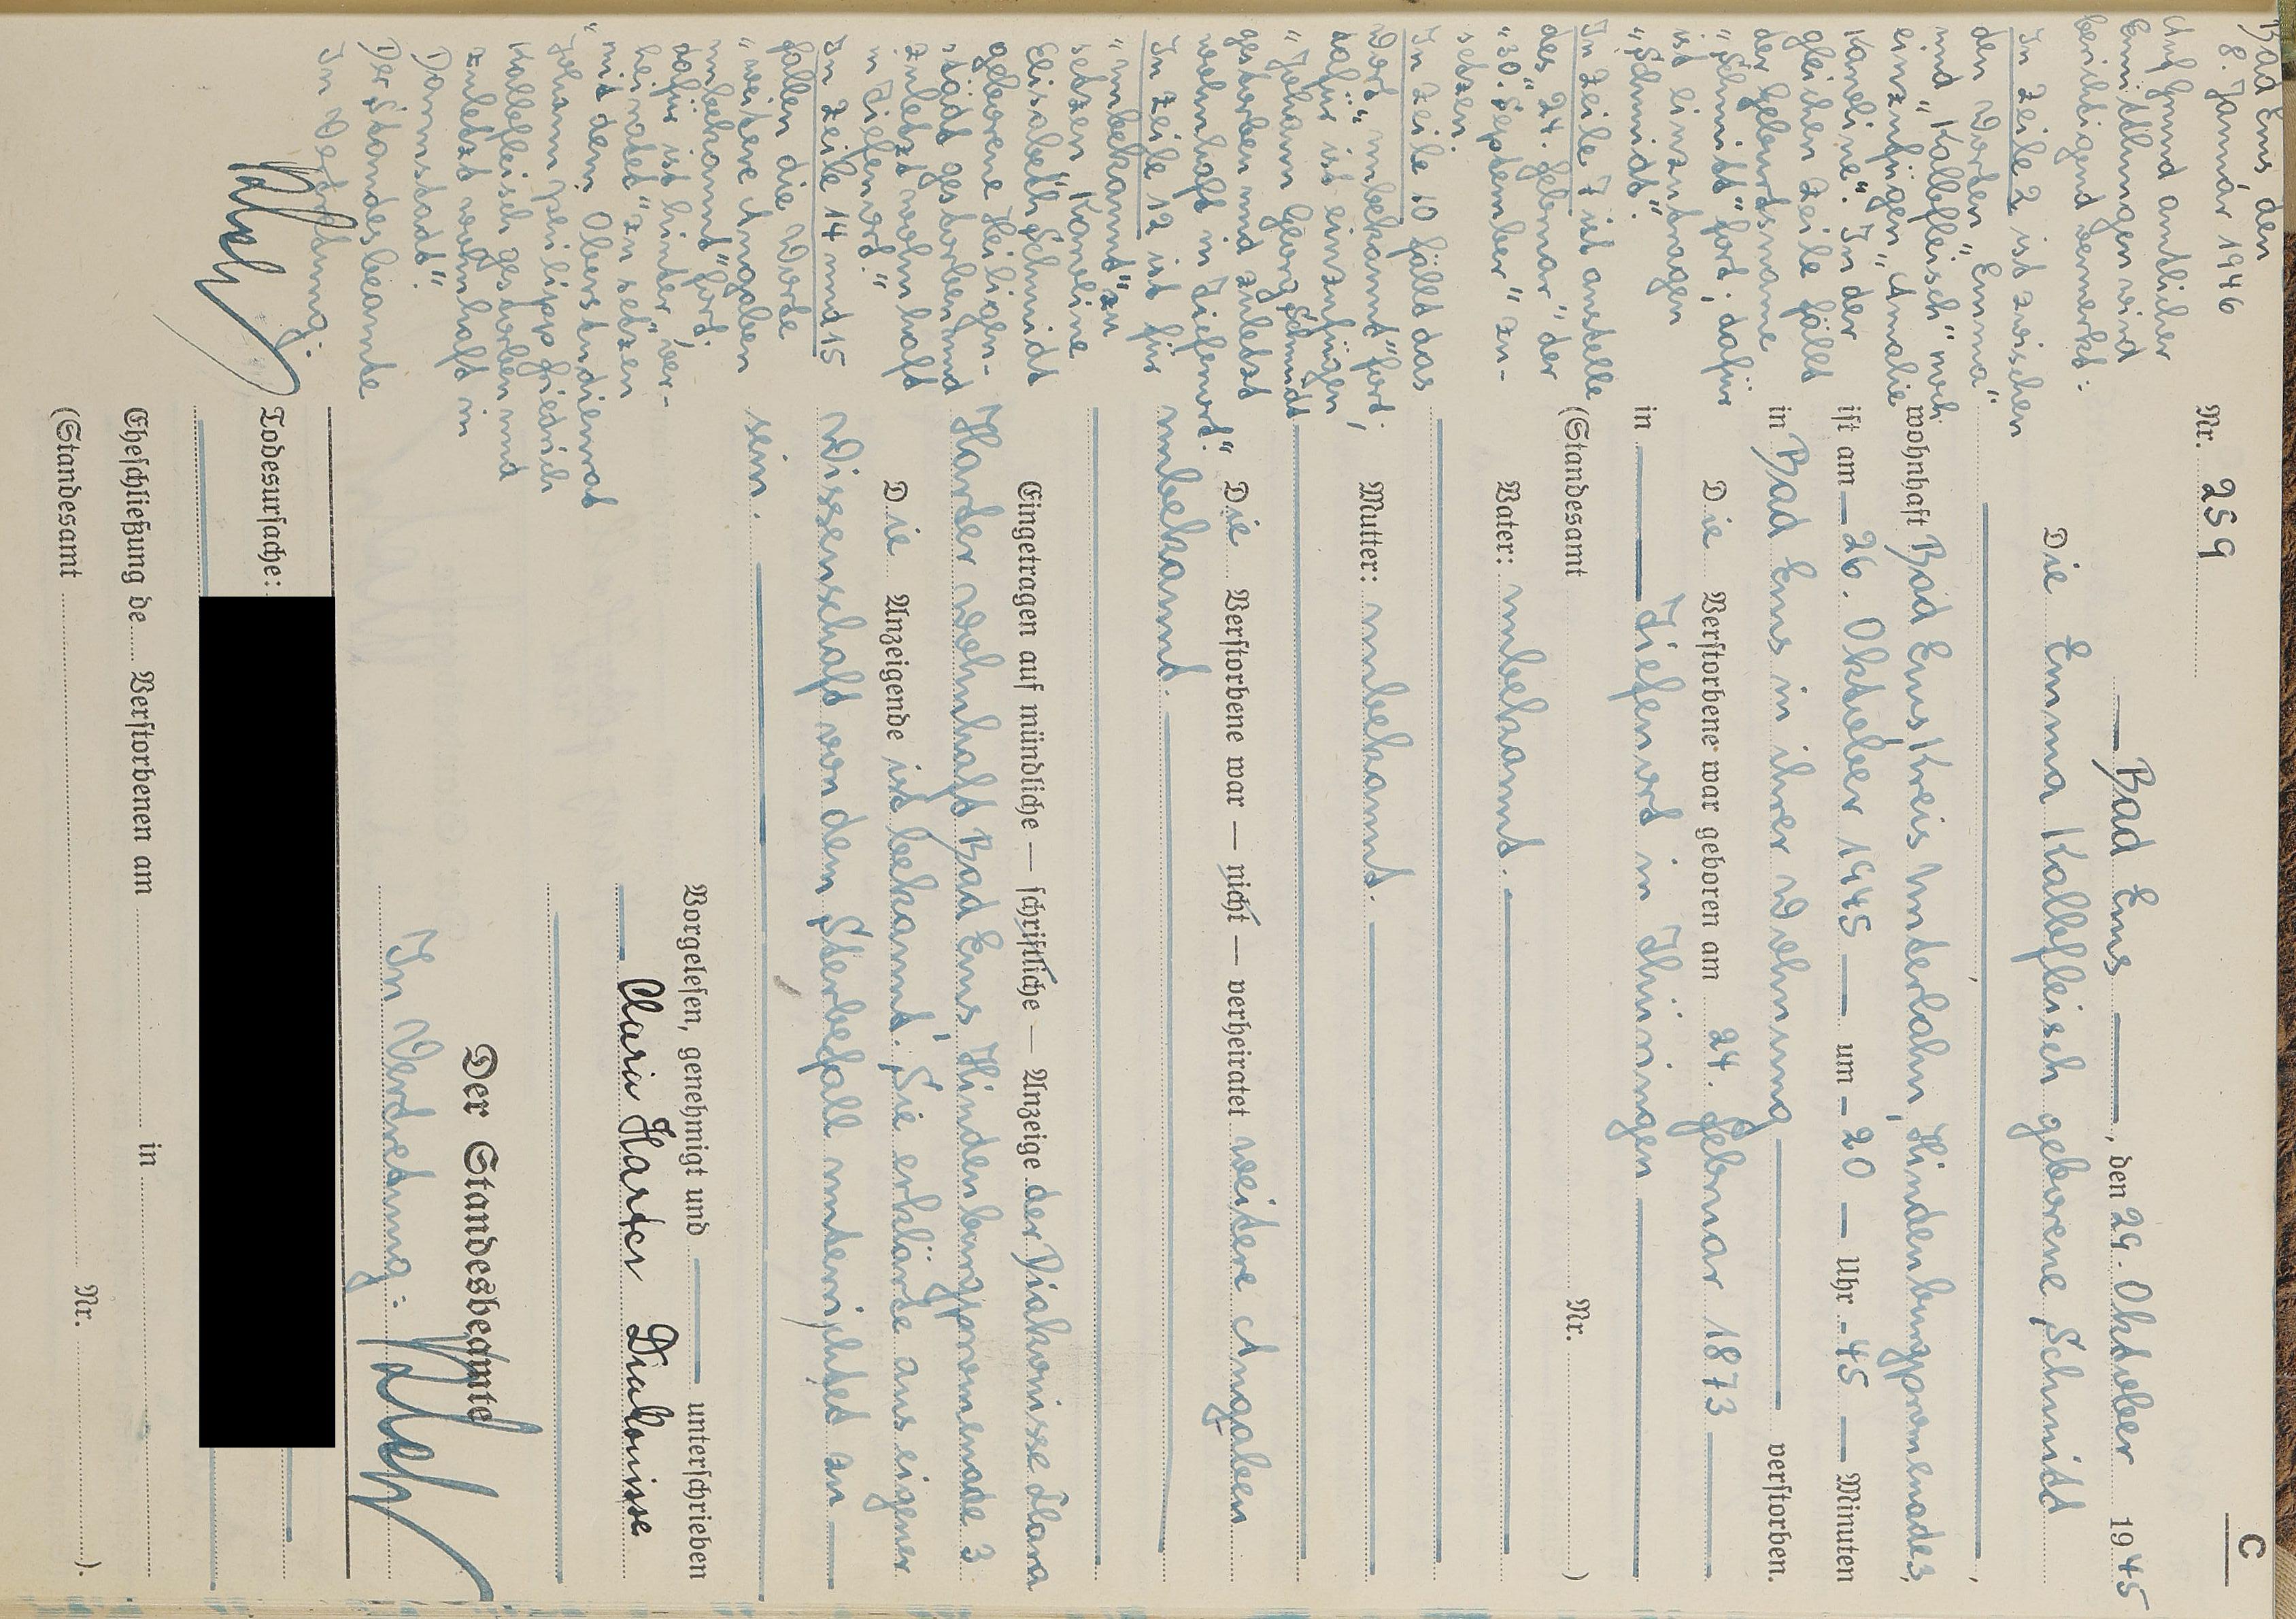 C
Nr. 259
Bad Ems, den 29. Oktober 1945
Die Emma Kalbfleisch geborene Schmitt
wohnhaft Bad Ems, Kreis Unterlahn, Hindenburgpromenade 3,
ist am 26. Oktober 1945 um 20 Uhr 45 Minuten
in Bad Ems in ihrer Wohnung verstorben.
Die Verstorbene war geboren am 24. Februar 1873
in Tiefenort in Thüringen
(Standesamt Nr. )
Vater: unbekannt.
Mutter: unbekannt.
Die Verstorbene war — nicht — verheiratet weitere Angaben
unbekannt.
Eingetragen auf mündliche — schriftliche — Anzeige der Diakonisse
Harder wohnhaft Bad Ems, Hindenburgpromenade 3
Die Anzeigende ist bekannt. Sie erklärte aus eigener
Wissenschaft von dem Sterbefall unterrichtet zu
sein.
Vorgelesen, genehmigt und unterschrieben
Harder Diakonisse
Der Standesbeamte
In Vertretung:
Todesursache:
Eheschließung de Verstorbenen am in
(Standesamt Nr. ).
Bad Ems, den
8. Januar 1946
Auf Grund amtlicher
Ermittlungen wird
berichtigend vermerkt:
In Zeile 2 ist zwischen
den Worten „Emma“
und „Kalbfleisch“ noch
einzufügen „Amalie
Karoline“. In der
gleichen Zeile fällt
der Geburtsname
„Schmitt“ fort, dafür
ist einzutragen
„Schmidt“.
In Zeile 7 ist anstelle
des „24. Februar“ der
„30. September“ zu
setzen.
In Zeile 10 fällt das
Wort „unbekannt“ fort,
dafür ist einzufügen,
„Johann Georg Schmidt
gestorben und zuletzt
wohnhaft in Tiefenort.“
In Zeile 12 ist für
„unbekannt“ zu
setzen „Karoline
Elisabeth Schmidt
geborene Heiligen-
städt gestorben und
zuletzt wohnhaft
in Tiefenort.“
In Zeile 14 und 15
fallen die Worte
„weitere Angaben
unbekannt“ fort,
dafür ist hinter „ver-
heiratet“ zu setzen
„mit dem Oberstudienrat
Johann Philipp Friedrich
Kalbfleisch gestorben und
zuletzt wohnhaft in
Darmstadt“.
Der Standesbeamte
In Vertretung: